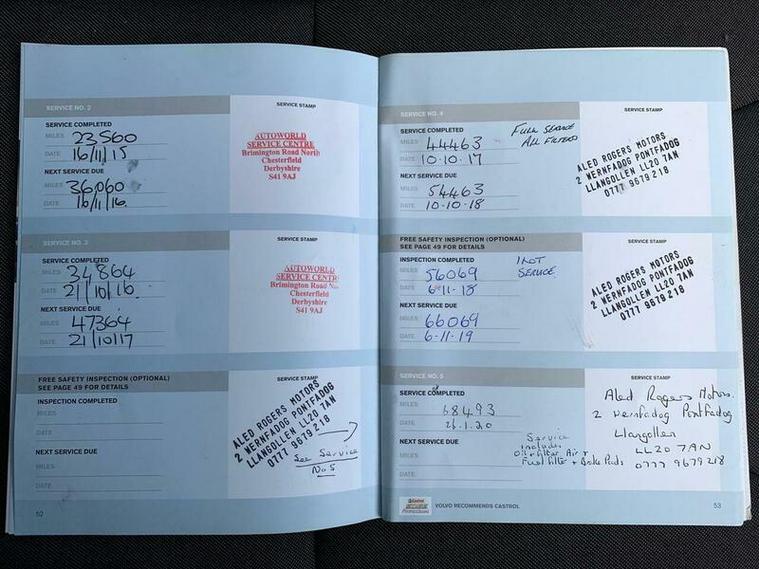 SERVICE NO. 2
SERVICE STAMP
SERVICE COMPLETED
MILES 23560
DATE 16/11/15
NEXT SERVICE DUE
MILES 36,060
DATE 16/11/16.
AUTOWORLD
SERVICE CENTRE
Brimington Road North
Chesterfield
Derbyshire
S41 9AJ
SERVICE NO. 3
SERVICE STAMP
SERVICE COMPLETED
MILES 34864
DATE 21/10/16.
NEXT SERVICE DUE
MILES 47364
DATE 21/10/17
AUTOWORLD
SERVICE CENTR
Brimington Road No
Chesterfield
Derbyshire
S41 9AJ
FREE SAFETY INSPECTION (OPTIONAL)
SEE PAGE 49 FOR DETAILS
SERVICE STAMP
INSPECTION COMPLETED
MILES
DATE
NEXT SERVICE DUE
MILES
DATE
ALED ROGERS MOTORS
2 WERNFADOG PONTFADOG
LLANGOLLEN LL20 7AN
0777 9679 218
See Service
No 5
52
SERVICE NO. 4
SERVICE STAMP
SERVICE COMPLETED
MILES 44463
DATE 10-10-17
FULL SERVICE
ALL FILTERS
NEXT SERVICE DUE
MILES 54463
DATE 10-10-18
ALED ROGERS MOTORS
2 WERNFADOG PONTFADOG
LLANGOLLEN LL20 7AN
0777 9679 218
FREE SAFETY INSPECTION (OPTIONAL)
SEE PAGE 49 FOR DETAILS
SERVICE STAMP
INSPECTION COMPLETED
MILES 56069
DATE 6-11-18
SERVICE
NEXT SERVICE DUE
MILES 66069
DATE 6-11-19
ALED ROGERS MOTORS
2 WERNFADOG PONTFADOG
LLANGOLLEN LL20 7AN
0777 9679 218
SERVICE NO. 5
SERVICE STAMP
SERVICE COMPLETED
MILES 68493
DATE 26.1.20
NEXT SERVICE DUE
MILES
DATE
Service
includes
Oil + filter Air +
Fuel filter + Brake Pads
Aled Rogers Motors.
2 Wernfadog Pontfadog
Llangollen
LL20 7AN
0777 9679218
Castrol
VOLVO RECOMMENDS CASTROL
53